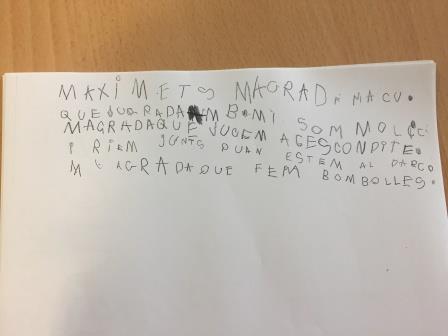 MAXiMETS MAGRADA MACU.
QUEJUGRADA M B MI SOM MOLT
MAGRADAQUE JUGEM AGESCONDITE.
I RIEM JUNTS QUAN ESTEM AL PARC.
M'AGRADAQUE FEM BOMBOLLES.